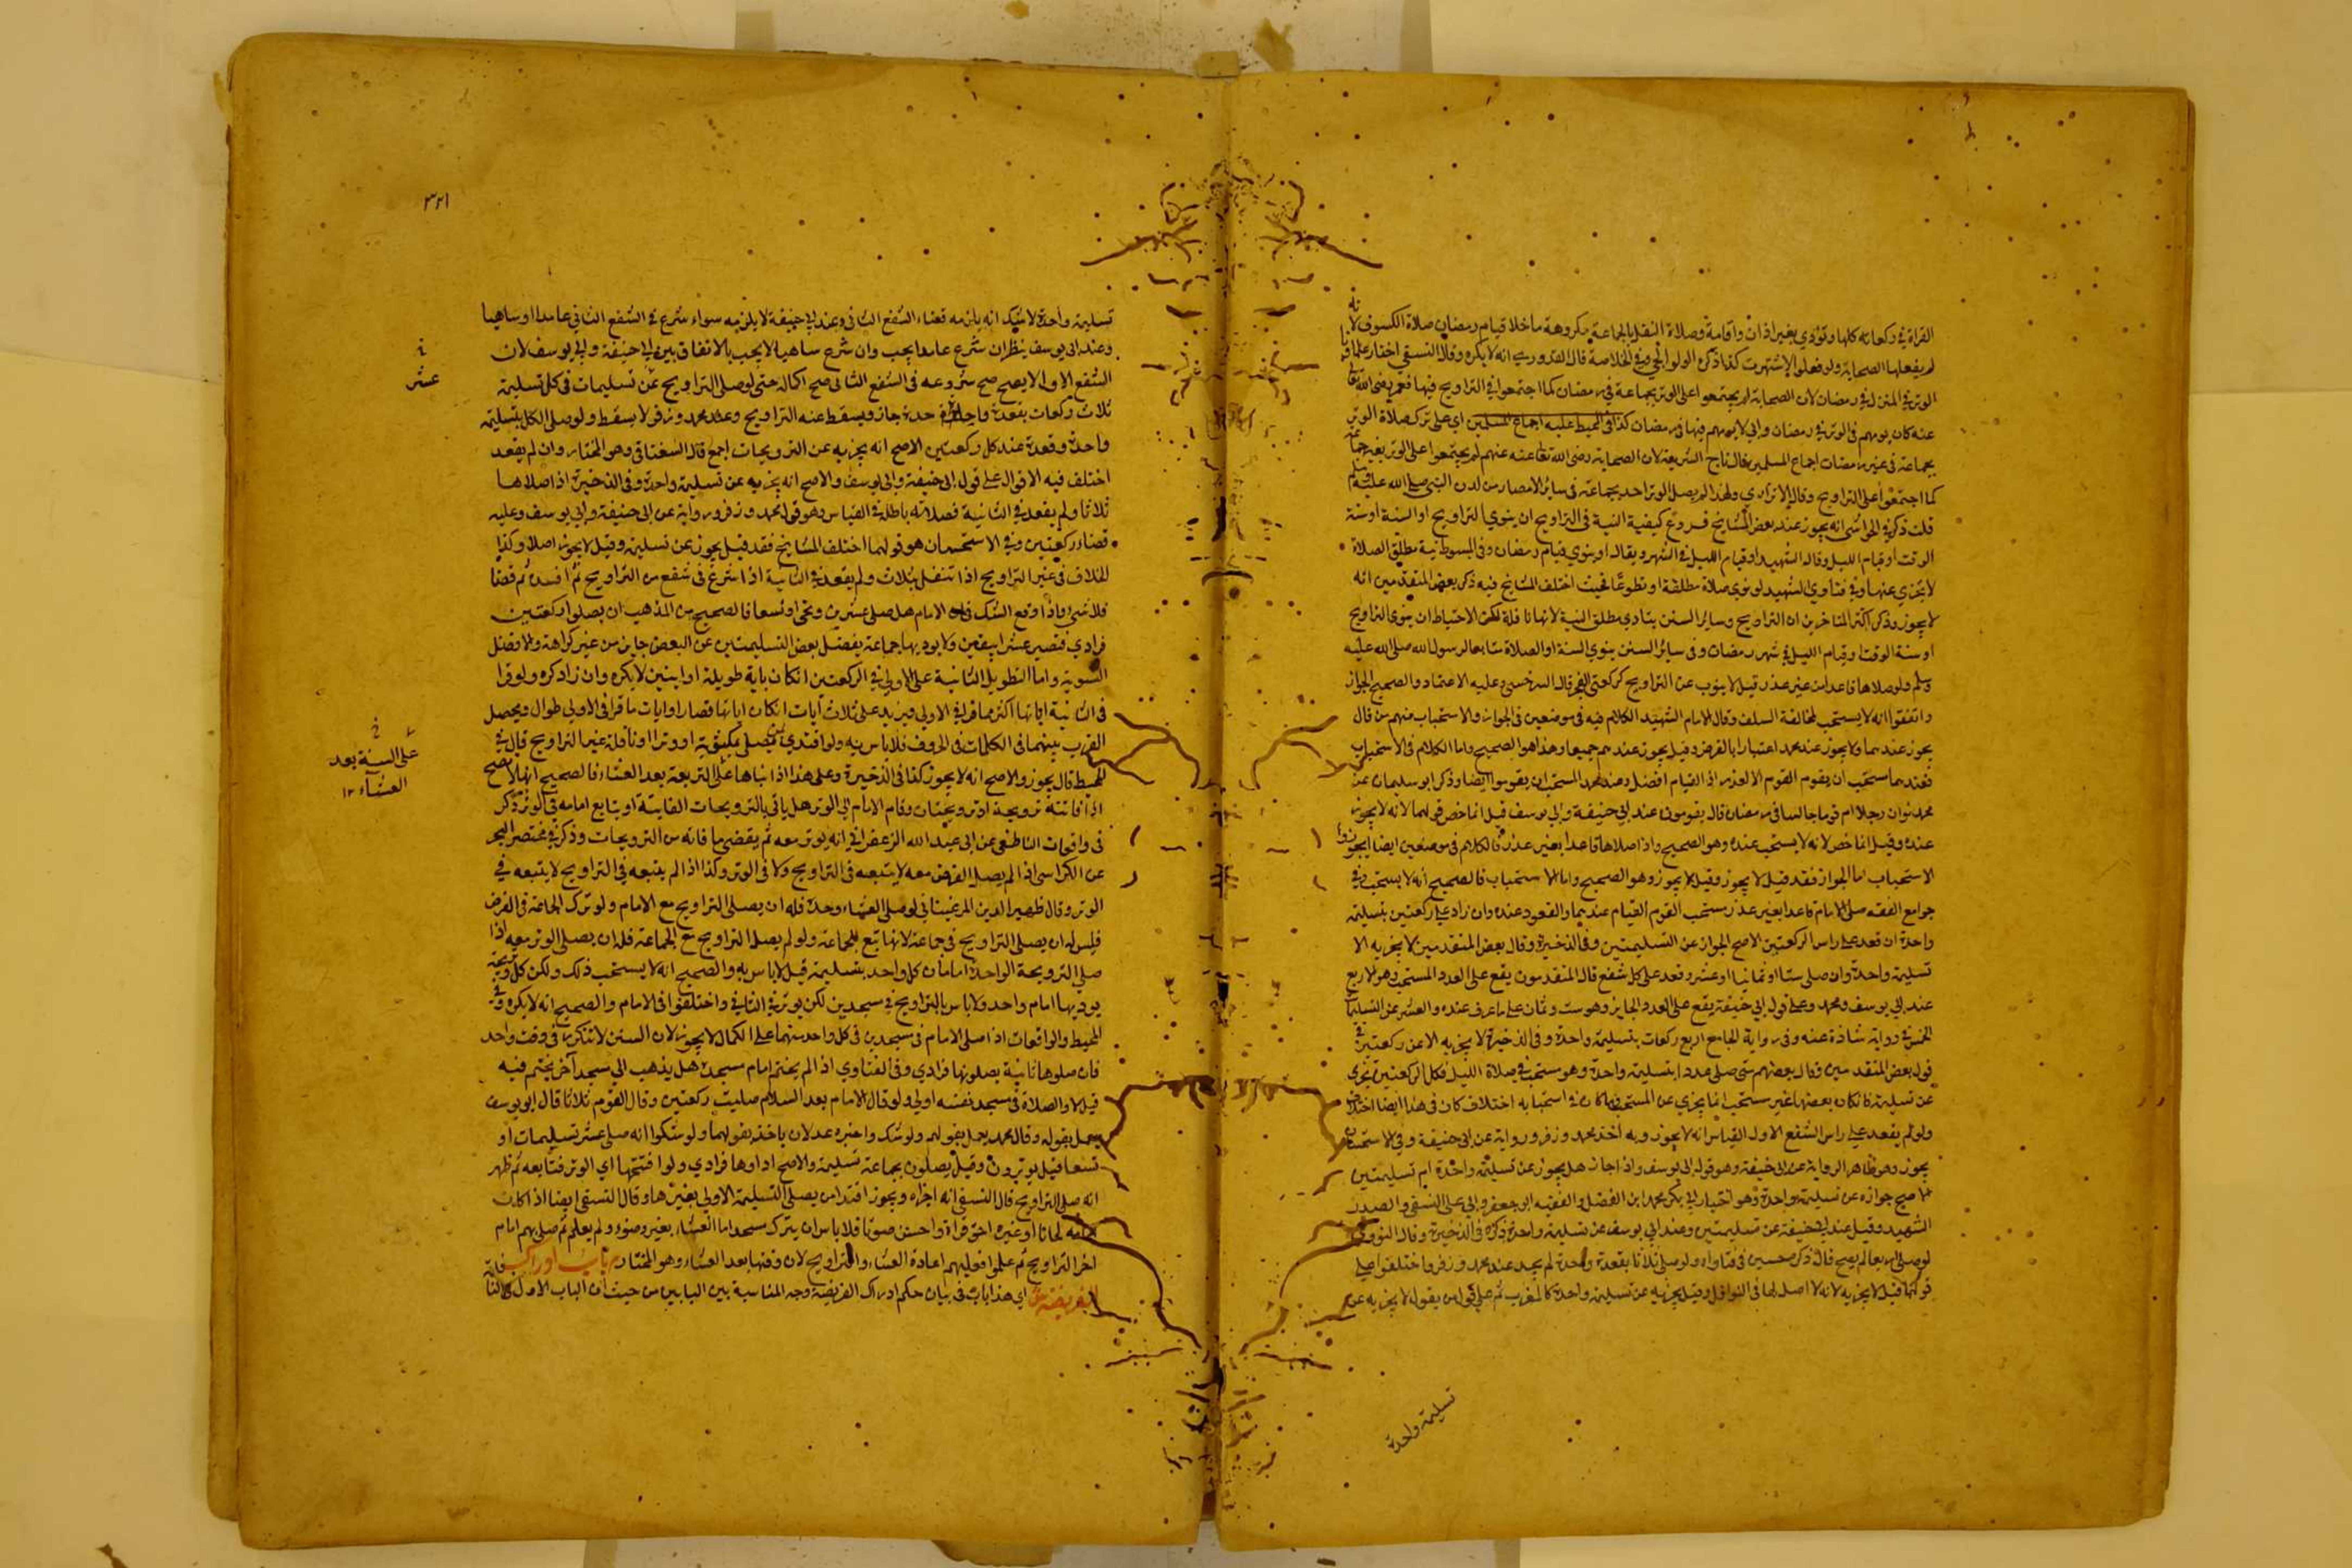 القراة في ركعاته كلها وتؤدي بغير اذان واقامة وصلاة النفل بالجماعة مكروهة ما خلا قيام رمضان صلاة الكسوف لانه
لم يفعلها الصحابة ولو فعلوا لاشتهرت كذا ذكره الولوالجي وفي الخلاصة قال القدوري انه لا يكره وقال النسفي اختار علماؤنا
الوتر في المنزل في رمضان لان الصحابة لم يجتمعوا على الوتر بجماعة في رمضان كما اجتمعوا في التراويح فيها فعمر رضى الله تعالى
عنه كان يومهم فى الوتر في رمضان وابي لا يومهم فيها في رمضان كذا فى المحيط عليه اجماع المسلمين اى على ترك صلاة الوتر
بجماعة فى غير رمضان اجماع المسلمين قال تاج الشريعة لان الصحابة رضى الله تعا عنهم لم يجتمعوا على الوتر بغير جماعة
كما اجتمعوا على التراويح وقال الاترازي ولهذا لم يصل الوتر احد بجماعة فى سائر الامصار من لدن النبي صلى الله عليه وسلم
قلت ذكر في الحواشى انه يجوز عند بعض المشايخ فروع كيفية النية فى التراويح ان ينوي التراويح او السنة او سنة
الوقت او قيام الليل وقال الشهيد او قيام الليل في الشهر ويقال او ينوي قيام رمضان وفى المبسوط نية مطلق الصلاة
لا يجزي عنها وفي فتاوي الشهيد لو نوي صلاة مطلقة او تطوعا فحيث اختلف المشايخ فيه ذكر بعض المتقدمين انه
لا يجوز وذكر اكثر المتاخرين ان التراويح وساير السنن يتادي بمطلق النية لانها نافلة لكن الاحتياط ان ينوى التراويح
او سنة الوقت او قيام الليل في شهر رمضان وفى سائر السنن ينوي السنة او الصلاة متابعا لرسول الله صلى الله عليه
وسلم ولو صلاها قاعدا من غير عذر قيل لا ينوب عن التراويح كركعتى الفجر قاله السرخسي وعليه الاعتماد والصحيح الجواز
واتفقوا انه لا يستحب لمخالفة السلف وقال الامام الشهيد الكلام فيه فى موضعين فى الجواز والاستحباب منهم من قال
يجوز عندهما ولا يجوز عند محمد اعتبارا بالفرض وقيل يجوز عندهم جميعا وهذا هو الصحيح واما الكلام فى الاستحباب
فعندهما يستحب ان يقوم القوم الا لعذر اذ القيام افضل وعند محمد المستحب ان يقوموا ايضا وذكر ابو سليمان عن
محمد لو ان رجلا ام قوما جالسا فى رمضان قال يقومون عند ابي حنيفة وابي يوسف قيل انما خص قولهما لانه لا يجوز
عنده وقيل انما خص لانه لا يستحب عنده وهو الصحيح واذا صلاها قاعدا بغير عذر فالكلام فى موضعين ايضا الجواز
الاستحباب اما الجواز فقد قيل لا يجوز وقيل يجوز وهو الصحيح واما الاستحباب فالصحيح انه لا يستحب وفي
جوامع الفقه صلى الامام قاعدا بغير عذر يستحب القوم القيام عندهما والقعود عنده وان زاد على ركعتين بتسليمة
واحدة ان قعد على راس الركعتين الاصح الجواز عن التسليمتين وفى الذخيرة وقال بعض المتقدمين لا يجزيه الا
تسليمة واحدة وان صلى ستا او ثمانيا او عشرا وقعد على كل شفع قال المتقدمون يقع على العدد المستحب وهو الاربع
عند ابي يوسف ومحمد وعلى قول ابي حنيفة يقع على العدد الجايز وهو ست وثمان على ما عرف عنده والعشر عن التسليمات
الخمس في رواية شاذة عنه وفى رواية الجامع اربع ركعات بتسليمة واحدة وفى الذخيرة لا يجزيه الا عن ركعتين في
قول بعض المتقدمين وقال بعضهم متى صلى عددا بتسليمة واحدة وهو مستحب في صلاة الليل فكل ركعتين تجزى
عن تسليمة فان كان بعضها غير مستحب انما يجزي عن المستحب فما كان فى استحبابه اختلاف كان فى هذا ايضا اختلاف
ولو لم يقعد على راس الشفع الاول القياس انه لا يجوز وبه اخذ محمد وزفر ورواية عن ابى حنيفة وفى الاستحسان
يجوز وهو ظاهر الرواية عن ابى حنيفة وهو قول ابى يوسف واذا جاز هل يجوز عن تسليمة واحدة ام تسليمتين
الاصح جوازه عن تسليمة واحدة وهو اختيار ابي بكر محمد ابن الفضل والفقيه ابو جعفر وابي على النسفى والصدر
الشهيد وقيل عند ابي حنيفة عن تسليمتين وعند ابي يوسف عن تسليمة واحدة ذكره فى الذخيرة وقال النووى
لو صلى اربعا لم يصح قال ذكر محسين فى فتاواه ولو صلى ثلاثا بقعدة واحدة لم يجز عند محمد وزفر واختلفوا على
قولهما قيل لا يجزيه لانه لا اصل لها فى النوافل وقيل يجزيه عن تسليمة واحدة كالمغرب ثم على قول من يقول لا يجزيه عن
تسليمة واحدة
٣٢١
تسليمة واحدة لا شك انه يلزمه قضاء الشفع الثانى وعند ابي حنيفة لا يلزمه سواء شرع فى الشفع الثانى عامدا او ساهيا
وعند ابى يوسف ينظر ان شرع عامدا يجب وان شرع ساهيا لا يجب بالاتفاق بين ابى حنيفة وابى يوسف لان
الشفع الاول لا يصح صح شروعه فى الشفع الثانى صح اكماله حتى لو صلى التراويح عشر تسليمات فى كل تسليمة
عشر
ثلاث ركعات بقعدة واحدة جاز ويسقط عنه التراويح وعند محمد وزفر لا يسقط ولو صلى الكل بتسليمة
واحدة وقعدة عند كل ركعتين الاصح انه يجزيه عن الترويحات اجمع قال السغناقى وهو المختار وان لم يقعد
اختلف فيه الاقوال على قول ابى حنيفة وابى يوسف والاصح انه يجزيه عن تسليمة واحدة وفى الذخيرة اذا صلاها
ثلاثا ولم يقعد في الثانية فصلاته باطلة في القياس وهو قول محمد وزفر ورواية عن ابى حنيفة وابى يوسف وعليه
قضاء ركعتين وفي الاستحسان هو قولهما اختلف المشايخ فقد قيل يجوز عن تسليمة وقيل لا يجوز اصلا وكذا
الخلاف فى غير التراويح اذا تنفل بثلاث ولم يقعد في الثانية اذا شرع فى شفع من التراويح ثم افسده ثم قضا
فلا شي واذا وقع الشك فى ان الامام هل صلى عشرين وتحرا وتسعا فالصحيح من المذهب ان يصلوا ركعتين
فرادي فتصير عشرا بيقين ولا يودي بها جماعة بفضل بعض التسليمتين عن البعض جايز من غير كراهة والافضل
التسوية واما التطويل الثانية على الاولى في الركعتين ان كان باية طويلة او ايتين لا يكره وان زاد كره ولو قرا
فى الثانية اياتها اكثر مما قرا فى الاولى ويزيد على ثلاث آيات ان كان اياتها قصارا وايات ما قرا فى الاولى طوال ويحصل
القرب بينهما فى الكلمات فى الحروف فلا باس به ولو اقتدي بمن يصلي مكتوبة او وترا او نافلة غير التراويح قال في
المحيط قال يجوز والاصح انه لا يجوز كذا فى الذخيرة وعلى هذا اذا بناها على التربعة بعد العشاء فالصحيح انها لا تصح
على السنة بعد
العشآء ١٢
اذا فاتته ترويحة او ترويحتان وقام الامام الى الوتر هل ياتي بالترويحات الفايتة او يتابع امامه فى الوتر ذكر
فى واقعات الناطفى عن ابى عبد الله الزعفراني انه يوتر معه ثم يقضى ما فاته من الترويحات وذكر في مختصر البحر
عن الكراسى اذا لم يصل الفرض معه لا يتبعه فى التراويح ولا فى الوتر وكذا اذا لم يتبعه في التراويح لا يتبعه في
الوتر وقال ظهير الدين المرغينانى لو صلى العشاء وحده فله ان يصلى التراويح مع الامام ولو ترك الجماعة فى الفرض
فليس له ان يصلى التراويح فى جماعة لانها تبع للجماعة ولو لم يصل التراويح مع الجماعة فله ان يصلى الوتر معه اذا
صلى الترويحة الواحدة امامان كل واحد بتسليمة قيل لا باس به والصحيح انه لا يستحب ذلك ولكن كل ترويحة
يوديها امام واحد ولا باس بالتراويح في مسجدين لكن يوتر في الثاني واختلفوا فى الامام والصحيح انه لا يكره وفي
المحيط والواقعات اذا صلى الامام فى مسجدين فى كل واحد منهما على الكمال لا يجوز لان السنن لا تتكرر فى وقت واحد
فان صلوها ثانية يصلونها فرادي وفى الفتاوي اذا لم يختم امام مسجده هل يذهب الي مسجد آخر يختم فيه
قيل لا والصلاة فى مسجد نفسه اولي ولو قال الامام بعد السلام صليت ركعتين وقال القوم ثلاثا قال ابو يوسف
يعمل بقوله وقال محمد يعمل بقولهم ولو شك واخبره عدلان ياخذ بقولهما ولو شكوا انه صلى عشر تسليمات او
تسعا قيل يوترون وقيل يصلون بجماعة تسليمة والاصح اداوها فرادي ولو افتتحها اي الوتر فتابعه ثم ظهر
انه صلى التراويح قال النسفى انه اجزاه ويجوز اقتداس يصلى التسليمة الاولي بغيرها وقال النسفى ايضا اذا كان
امامه لحانا او غيره اخف قراة واحسن صوتا فلا باس ان يترك مسجده اما العشاء بغير وضوء ولم يعلم ثم صلى بهم امام
اخر التراويح ثم علموا فعليهم اعادة العشاء والتراويح لان وقتها بعد العشاء وهو المختار باب ادراك
الفريضة اي هذا باب فى بيان حكم ادراك الفريضة وجه المناسبة بين البابين من حيث ان الباب الاول